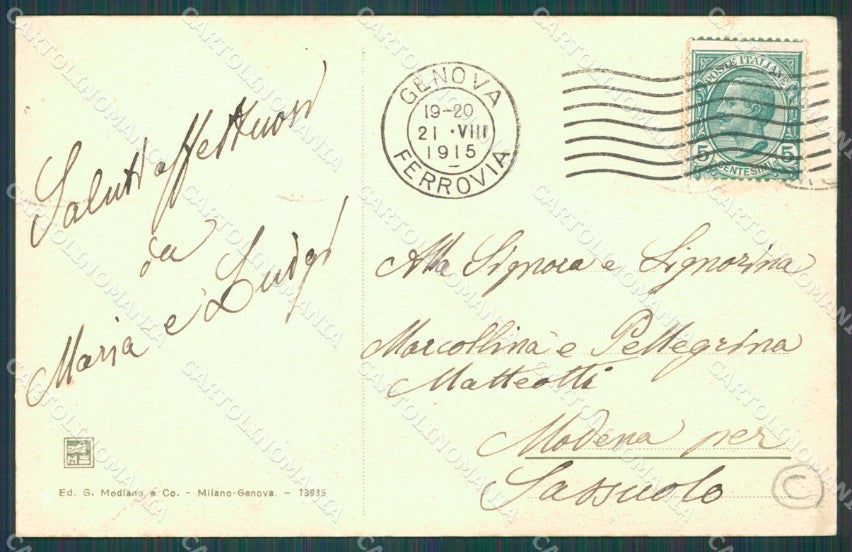 Saluti affettuosi
da
Maria e Luigi
Ed. G. Mediano e Co. - Milano-Genova. - 13985
GENOVA
19-20
21 · VIII
1915
FERROVIA
POSTE ITALIANE
5 CENTESIMI 5
Alla Signora e Signorina
Marcollina e Pellegrina
Matteotti
Modena per
Sassuolo
C
CARTOLINOMANIA